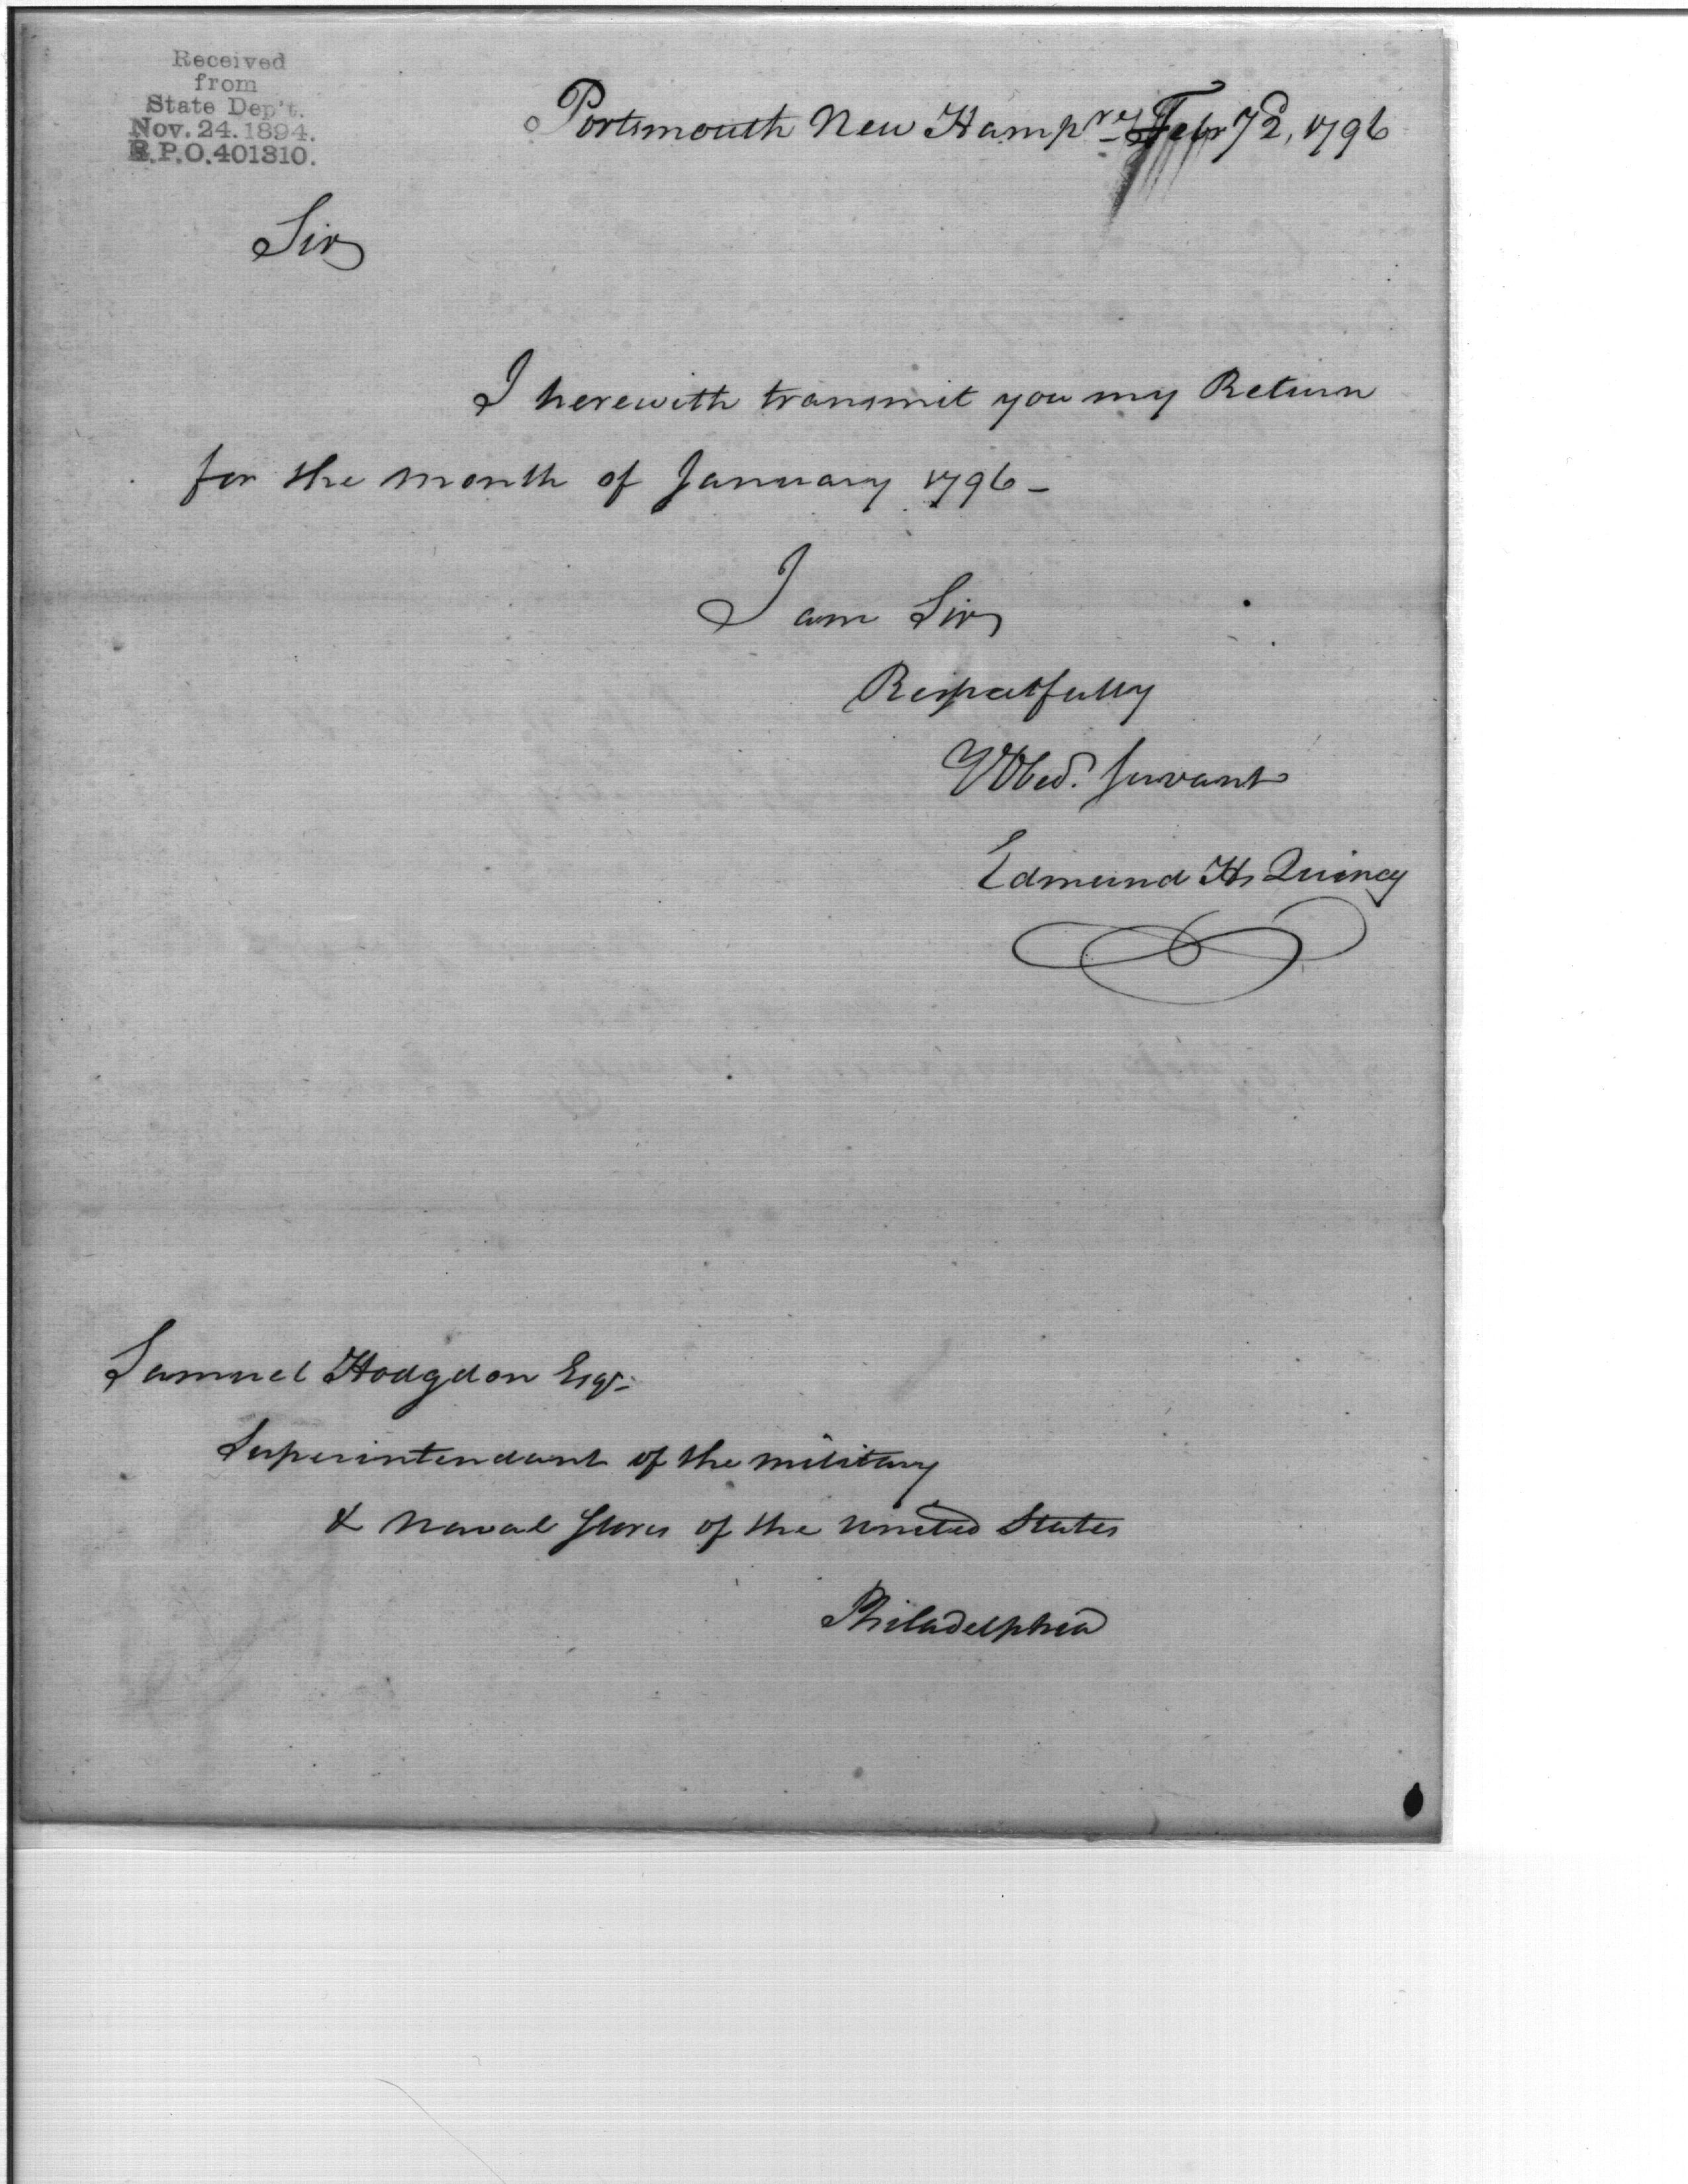 Received
from
State Dep't.
Nov. 24. 1894.
R.P.O. 401310.
Portsmouth New Hampre Febry 2, 1796
Sir
I herewith transmit you my Return
for the month of January 1796 -
I am Sir
Respectfully
Y Obed. Servant
Edmund H Quincy
Samuel Hodgdon Esqr.
Superintendant of the military
& Naval Stores of the United States
Philadelphia